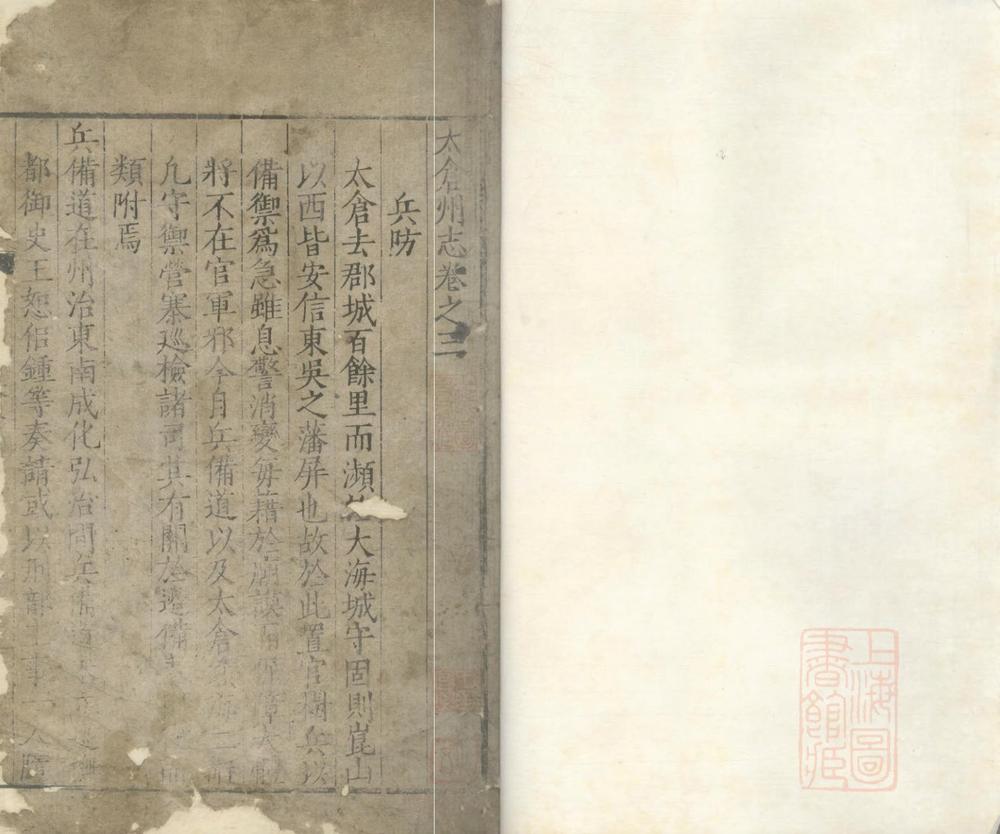 上海圖
書館藏
太倉州志卷之三
兵防
太倉去郡城百餘里而瀕大海城守固則崑山
以西皆安信東吳之藩屏也故於此置官樹兵以
備禦爲急雖息警消變每藉於
將不在官軍邪今自兵備道以及太倉海二
凡守禦營寨廵檢諸司其有關於邊備
類附焉
兵備道在州治東南成化弘治間兵備道
都御史王恕侶鍾等奏請或以刑部主事一人